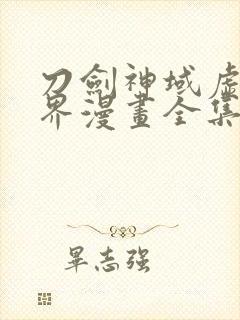 刀劍神域虛
界漫畫全集
畢志强